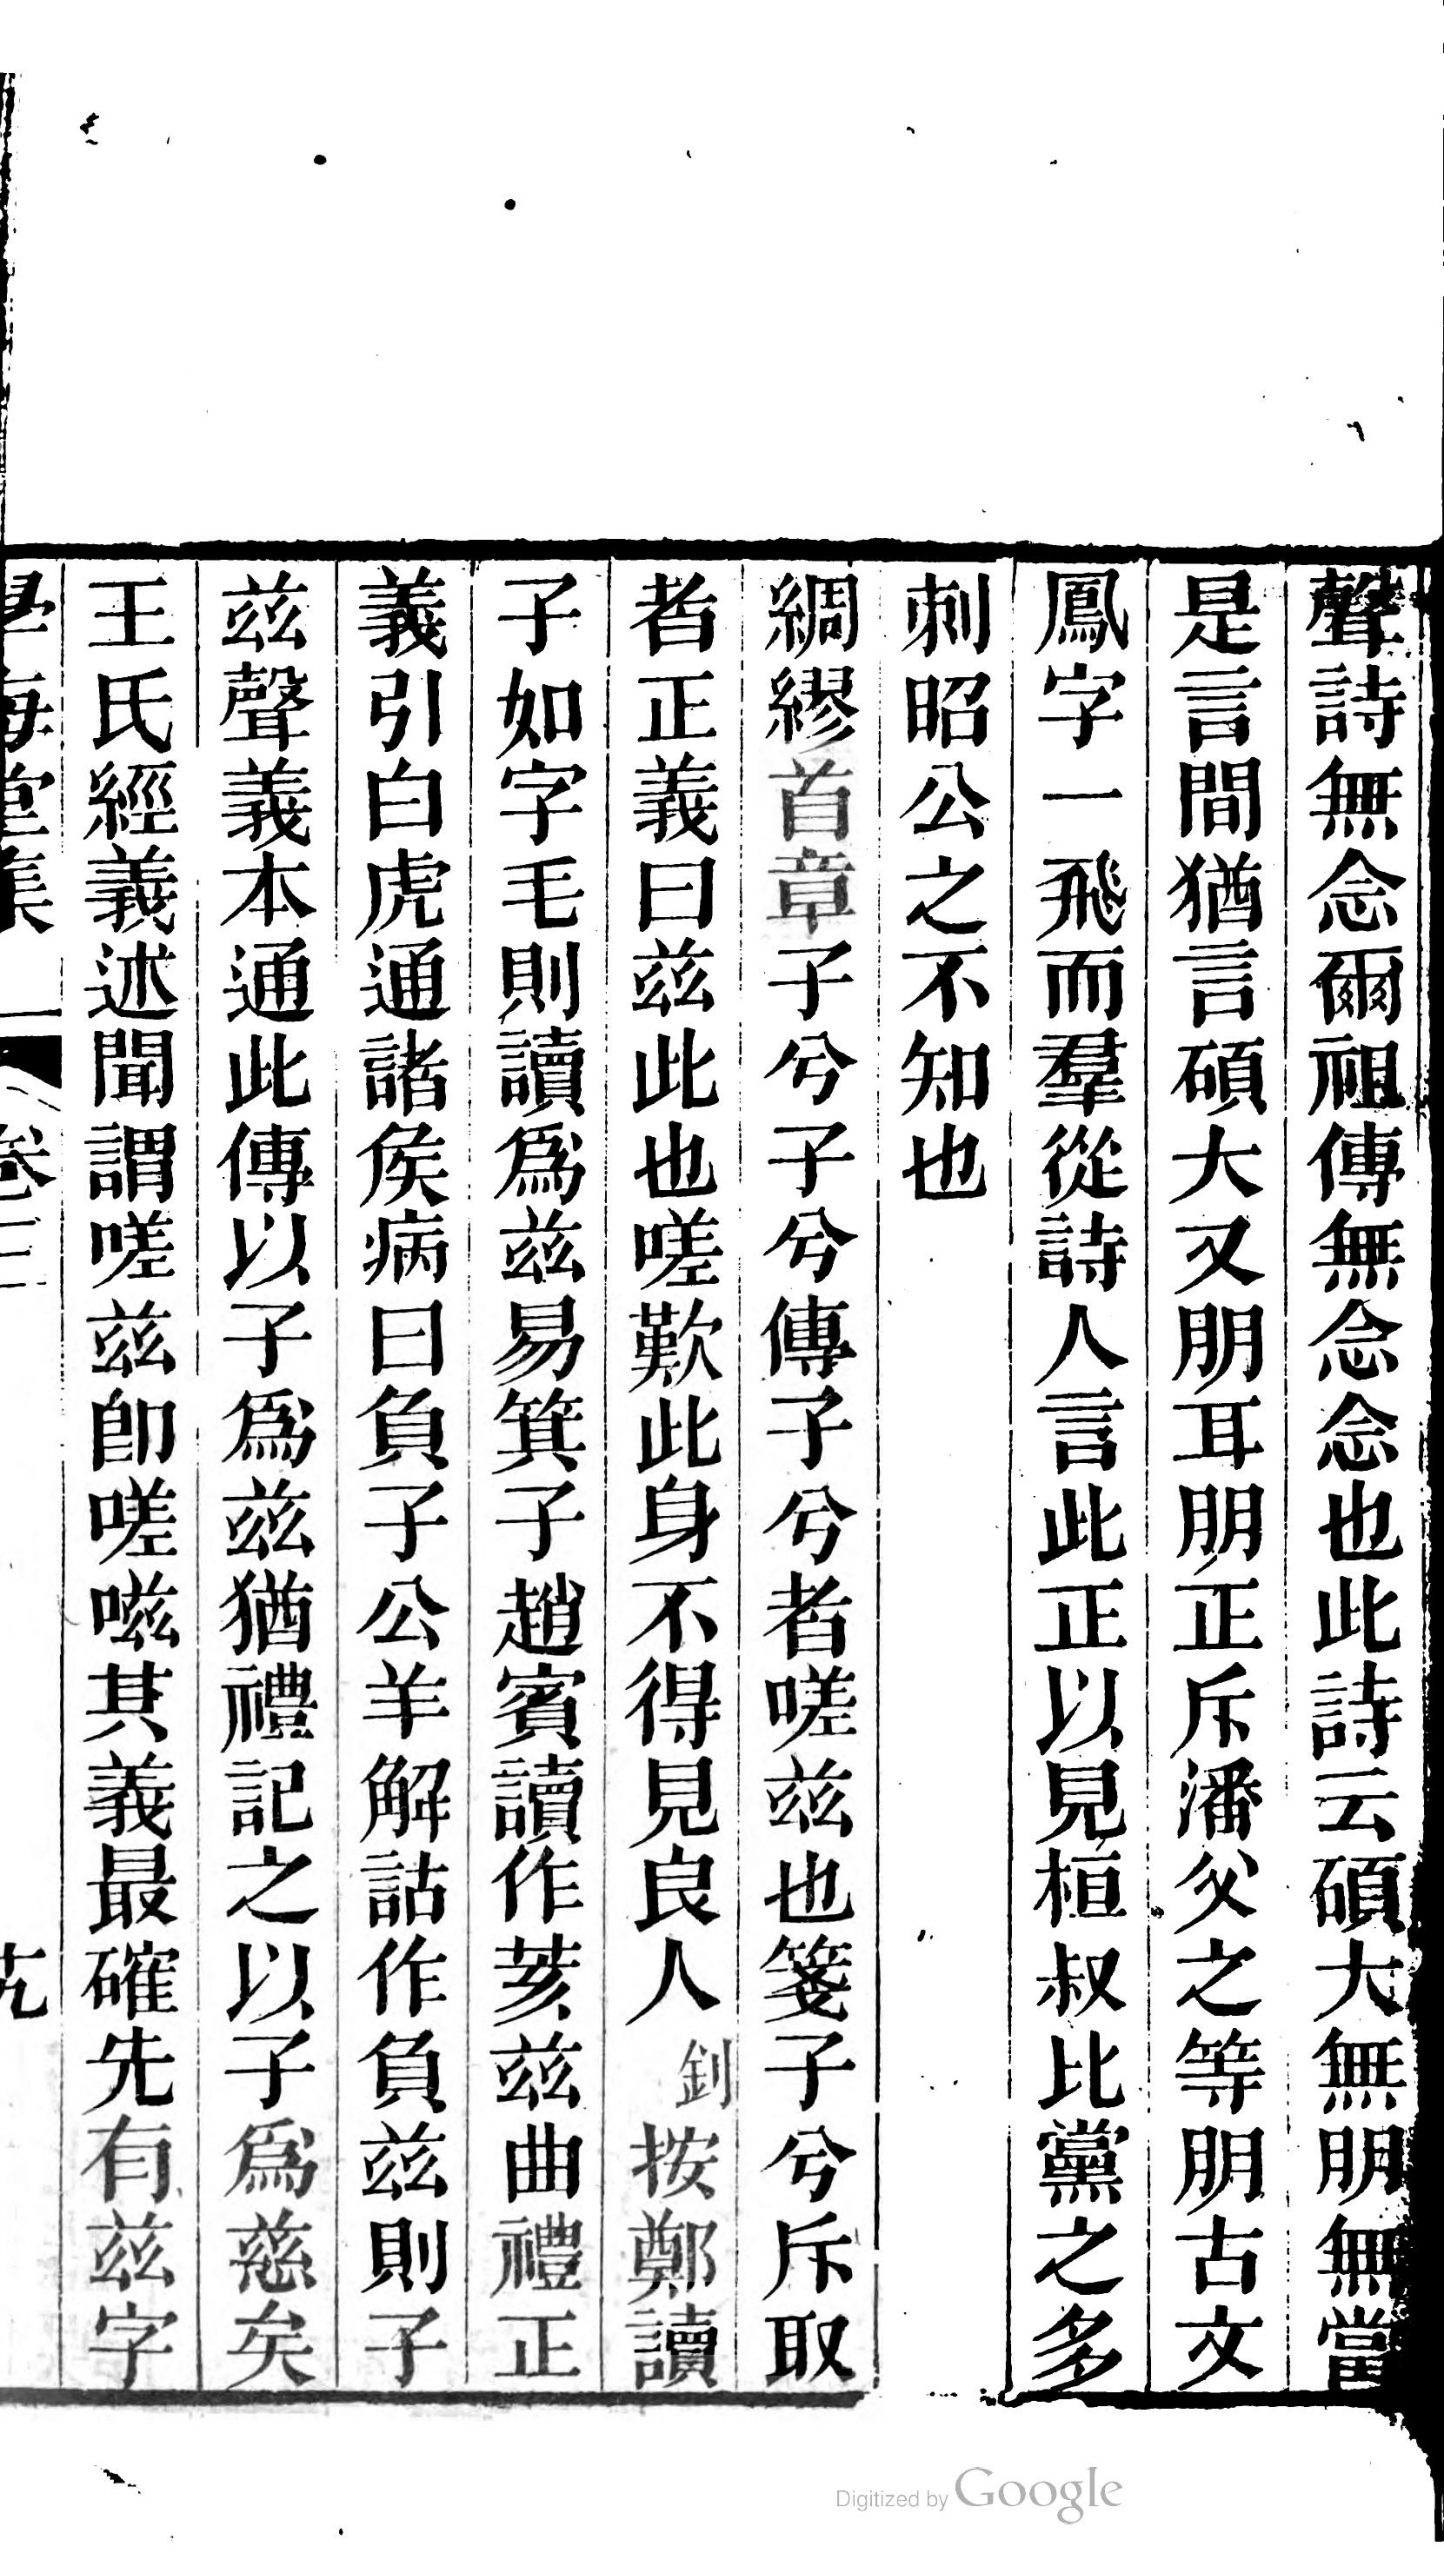 聲詩無念爾祖傳無念念也此詩云碩大無朋無當
是言間猶言碩大又朋耳朋正斥潘父之等朋古文
鳳字一飛而羣從詩人言此正以見桓叔比黨之多
刺昭公之不知也
綢繆首章子兮子兮傳子兮者嗟茲也箋子兮斥取
者正義曰茲此也嗟歎此身不得見良人釗按鄭讀
子如字毛則讀爲茲易箕子趙賓讀作荄茲曲禮正
義引白虎通諸侯病曰負子公羊解詁作負茲則子
茲聲義本通此傳以子爲茲猶禮記之以子爲慈矣
王氏經義述聞謂嗟茲卽嗟嗞其義最確先有茲字
學海堂集 卷三
Digitized by Google